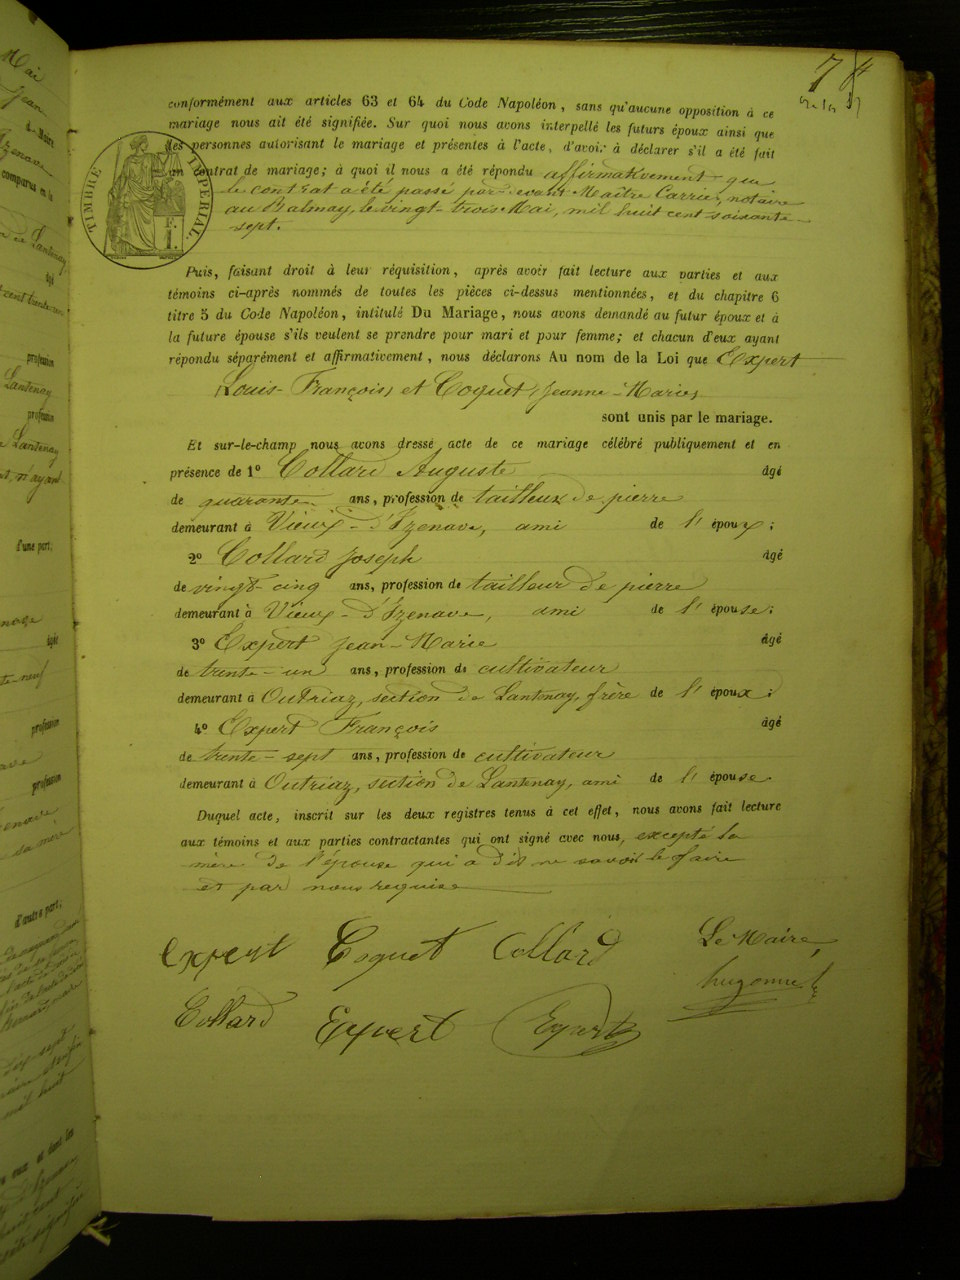 conformément aux articles 63 et 64 du Code Napoléon, sans qu'aucune opposition à ce
mariage nous ait été signifiée. Sur quoi nous avons interpellé les futurs époux ainsi que
les personnes autorisant le mariage et présentes à l'acte, d'avoir à déclarer s'il a été fait
un contrat de mariage; à quoi il nous a été répondu affirmativement que
le contrat a été passé par-devant Maître Carrier, notaire
au Balmay, le vingt-trois Mai, mil huit cent soixante
sept.
TIMBRE IMPÉRIAL.
F.
1.
Puis, faisant droit à leur réquisition, après avoir fait lecture aux parties et aux
témoins ci-après nommés de toutes les pièces ci-dessus mentionnées, et du chapitre 6
titre 5 du Code Napoléon, intitulé Du Mariage, nous avons demandé au futur époux et à
la future épouse s'ils veulent se prendre pour mari et pour femme; et chacun d'eux ayant
répondu séparément et affirmativement, nous déclarons Au nom de la Loi que Expert
(Louis-François) et Coquet (Jeanne-Marie)
sont unis par le mariage.
Et sur-le-champ nous avons dressé acte de ce mariage célébré publiquement et en
présence de 1º Collard Auguste âgé
de quarante ans, profession de tailleur de pierre
demeurant à Vieux-d'Izenave, ami de l'époux;
2º Collard Joseph âgé
de vingt-cinq ans, profession de tailleur de pierre
demeurant à Vieux-d'Izenave, ami de l'épouse;
3º Expert Jean-Marie âgé
de trente-un ans, profession de cultivateur
demeurant à Outriaz, section de Lantenay, frère de l'époux;
4º Expert François âgé
de trente-sept ans, profession de cultivateur
demeurant à Outriaz, section de Lantenay, ami de l'épouse
Duquel acte, inscrit sur les deux registres tenus à cet effet, nous avons fait lecture
aux témoins et aux parties contractantes qui ont signé avec nous, excepté la
mère de l'épouse qui a dit ne savoir le faire
et par nous requise
Expert Coquet Collard Le Maire,
hugonnet
Collard Expert Expert